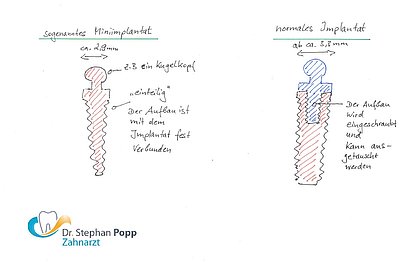 sogenanntes Miniimplantat
ca. 2,9mm
z.B ein Kugelkopf
„einteilig"
Der Aufbau ist
mit dem
Implantat fest
Verbunden
normales Implantat
ab ca. 3,3mm
Der Aufbau
wird
eingeschraubt
und
Kann aus-
getauscht
werden
Dr. Stephan Popp
Zahnarzt